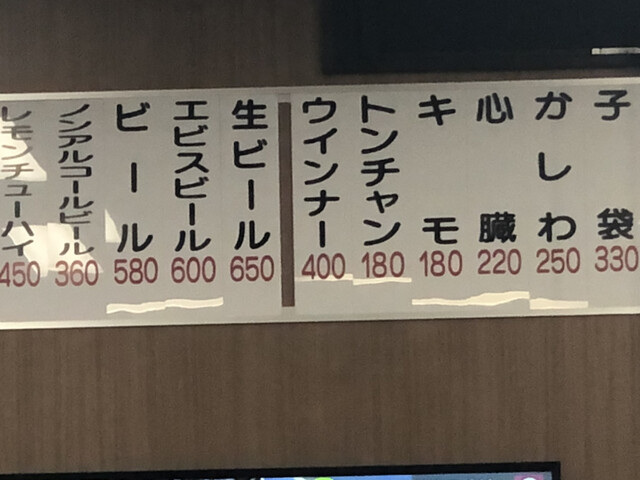 子袋
330
かしわ
250
心臓
220
キモ
180
トンチャン
180
ウインナー
400
生ビール
650
エビスビール
600
ビール
580
ノンアルコールビール
360
レモンチューハイ
450